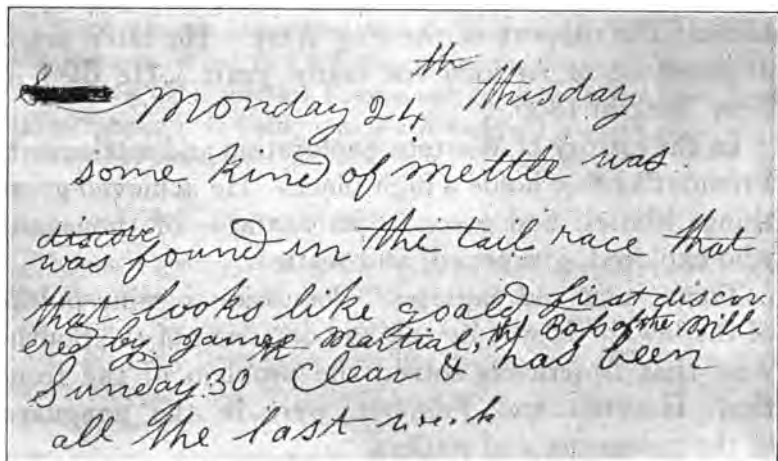 Monday 24th this day
some kind of mettle was
discove
was found in the tail race that
that looks like goald first discov
ered by James Martial, the Boss of the Mill
Sunday 30th Clear & has been
all the last week